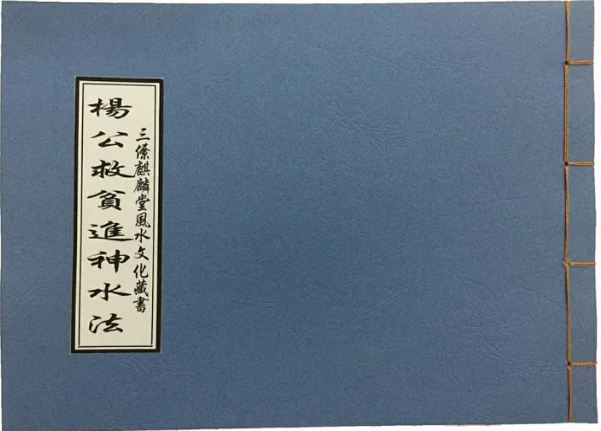 楊公救貧進神水法
三僚麒麟堂風水文化藏書